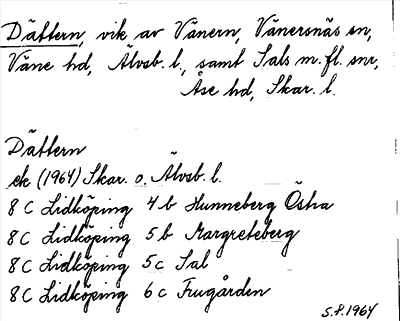 Dättern, vik av Vänern, Vänersnäs sn,
Väne hd, Älvsb. l., samt Sals m.fl. snr,
Åse hd, Skar. l.
Dättern
ek (1964) Skar. o. Älvsb. l.
8 C Lidköping 4 b Hunneberg Östra
8 C Lidköping 5 b Margreteberg
8 C Lidköping 5 c Sal
8 C Lidköping 6 c Frugården
S.P. 1964